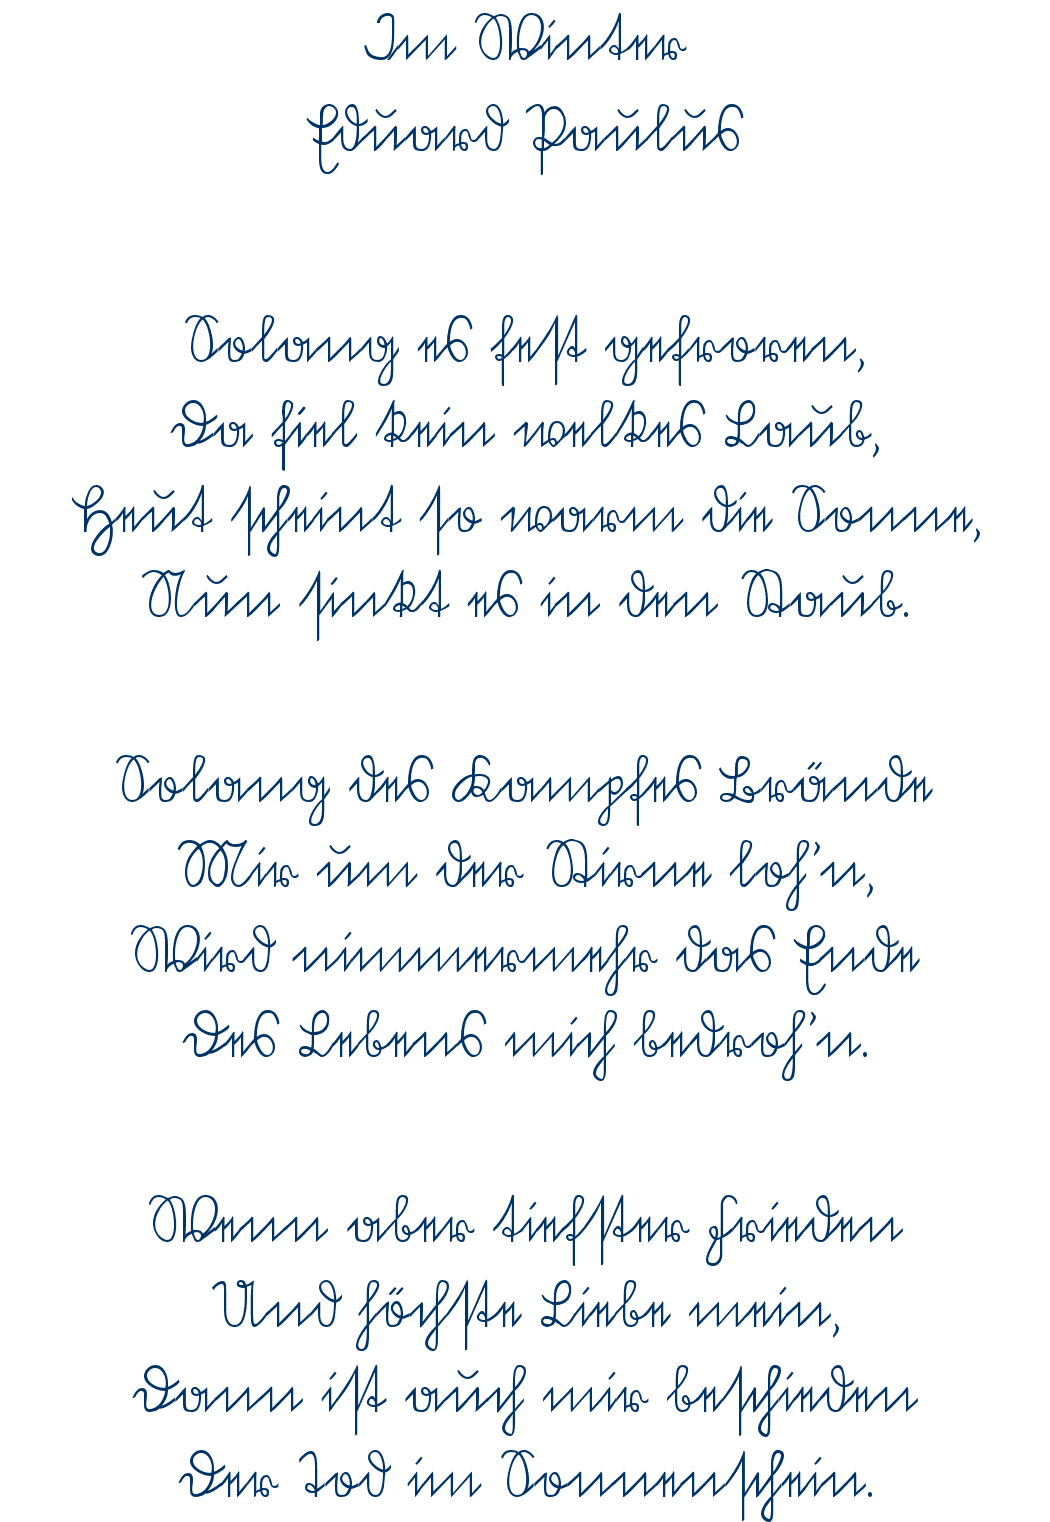 Im Winter
Eduard Paulus
Solang es fest gefroren,
Da fiel kein welkes Laub,
Heut scheint so warm die Sonne,
Nun sinkt es in den Staub.
Solang des Kampfes Brände
Mir um der Stirne loh'n,
Wird nimmermehr das Ende
Des Lebens mich bedroh'n.
Wenn aber tiefster Frieden
Und höchste Liebe mein,
Dann ist auch mir beschieden
Der Tod im Sonnenschein.